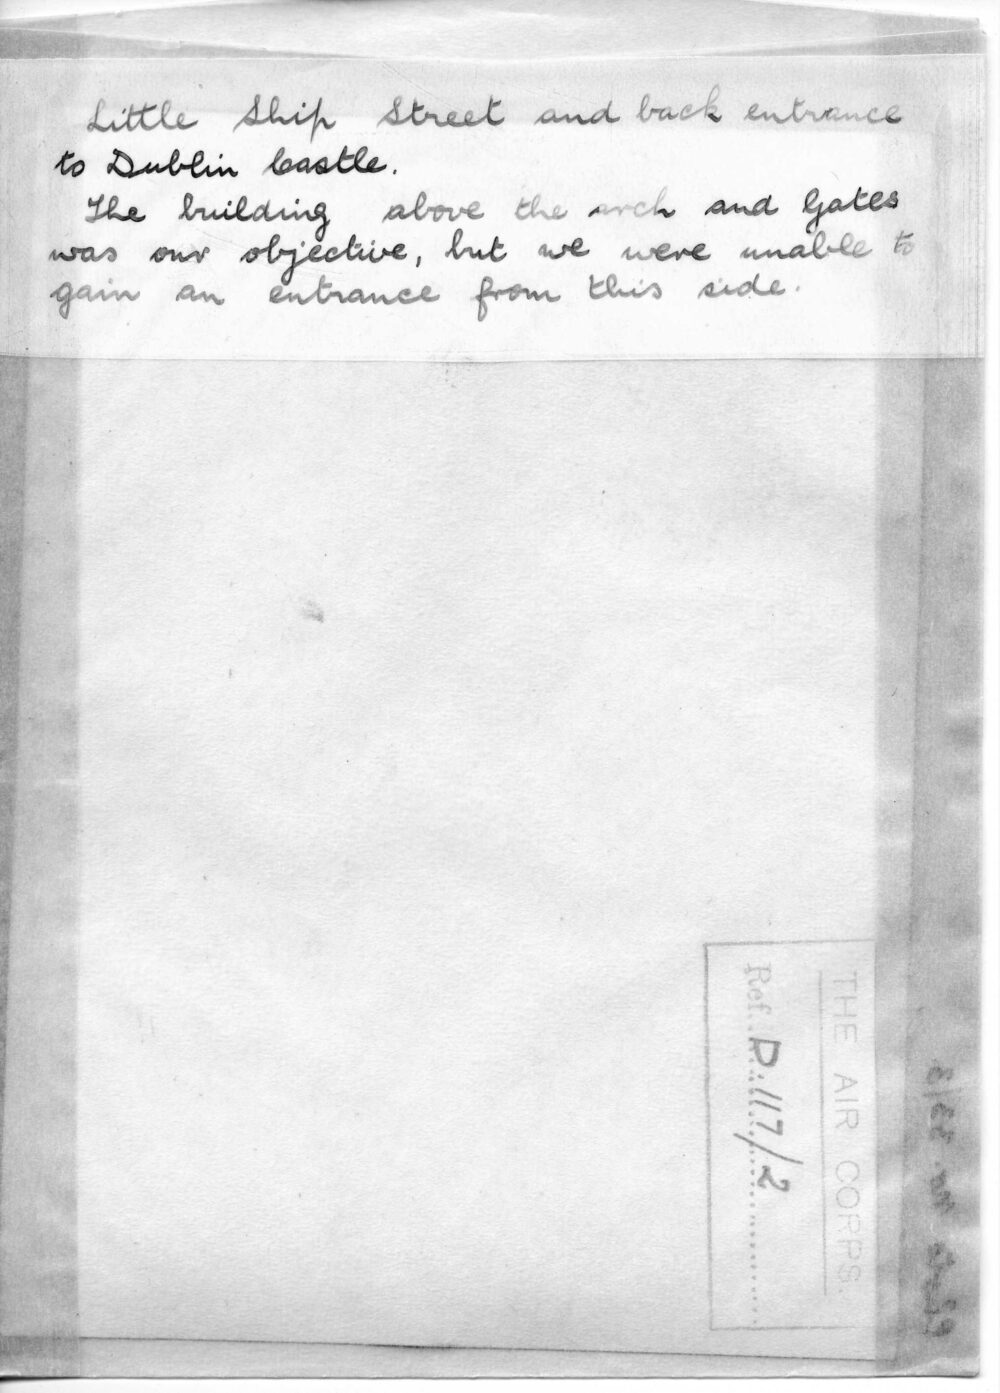 Little Ship Street and back entrance
to Dublin Castle.
The building above the arch and Gates
was our objective, but we were unable to
gain an entrance from this side.
THE AIR CORPS.
Ref. P.117/2